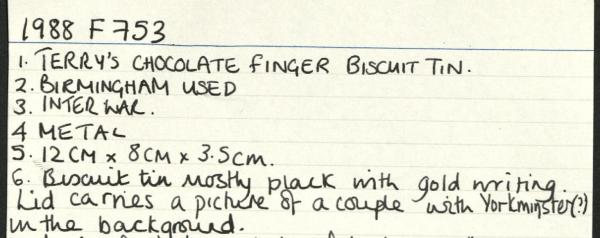 1988 F 753
1. TERRY'S CHOCOLATE FINGER BISCUIT TIN.
2. BIRMINGHAM USED
3. INTER WAR.
4 METAL
5. 12 CM x 8 CM x 3.5 cm.
6. Biscuit tin mostly plack with gold writing.
Lid carries a picture of a couple with Yorkminster(?)
in the background.